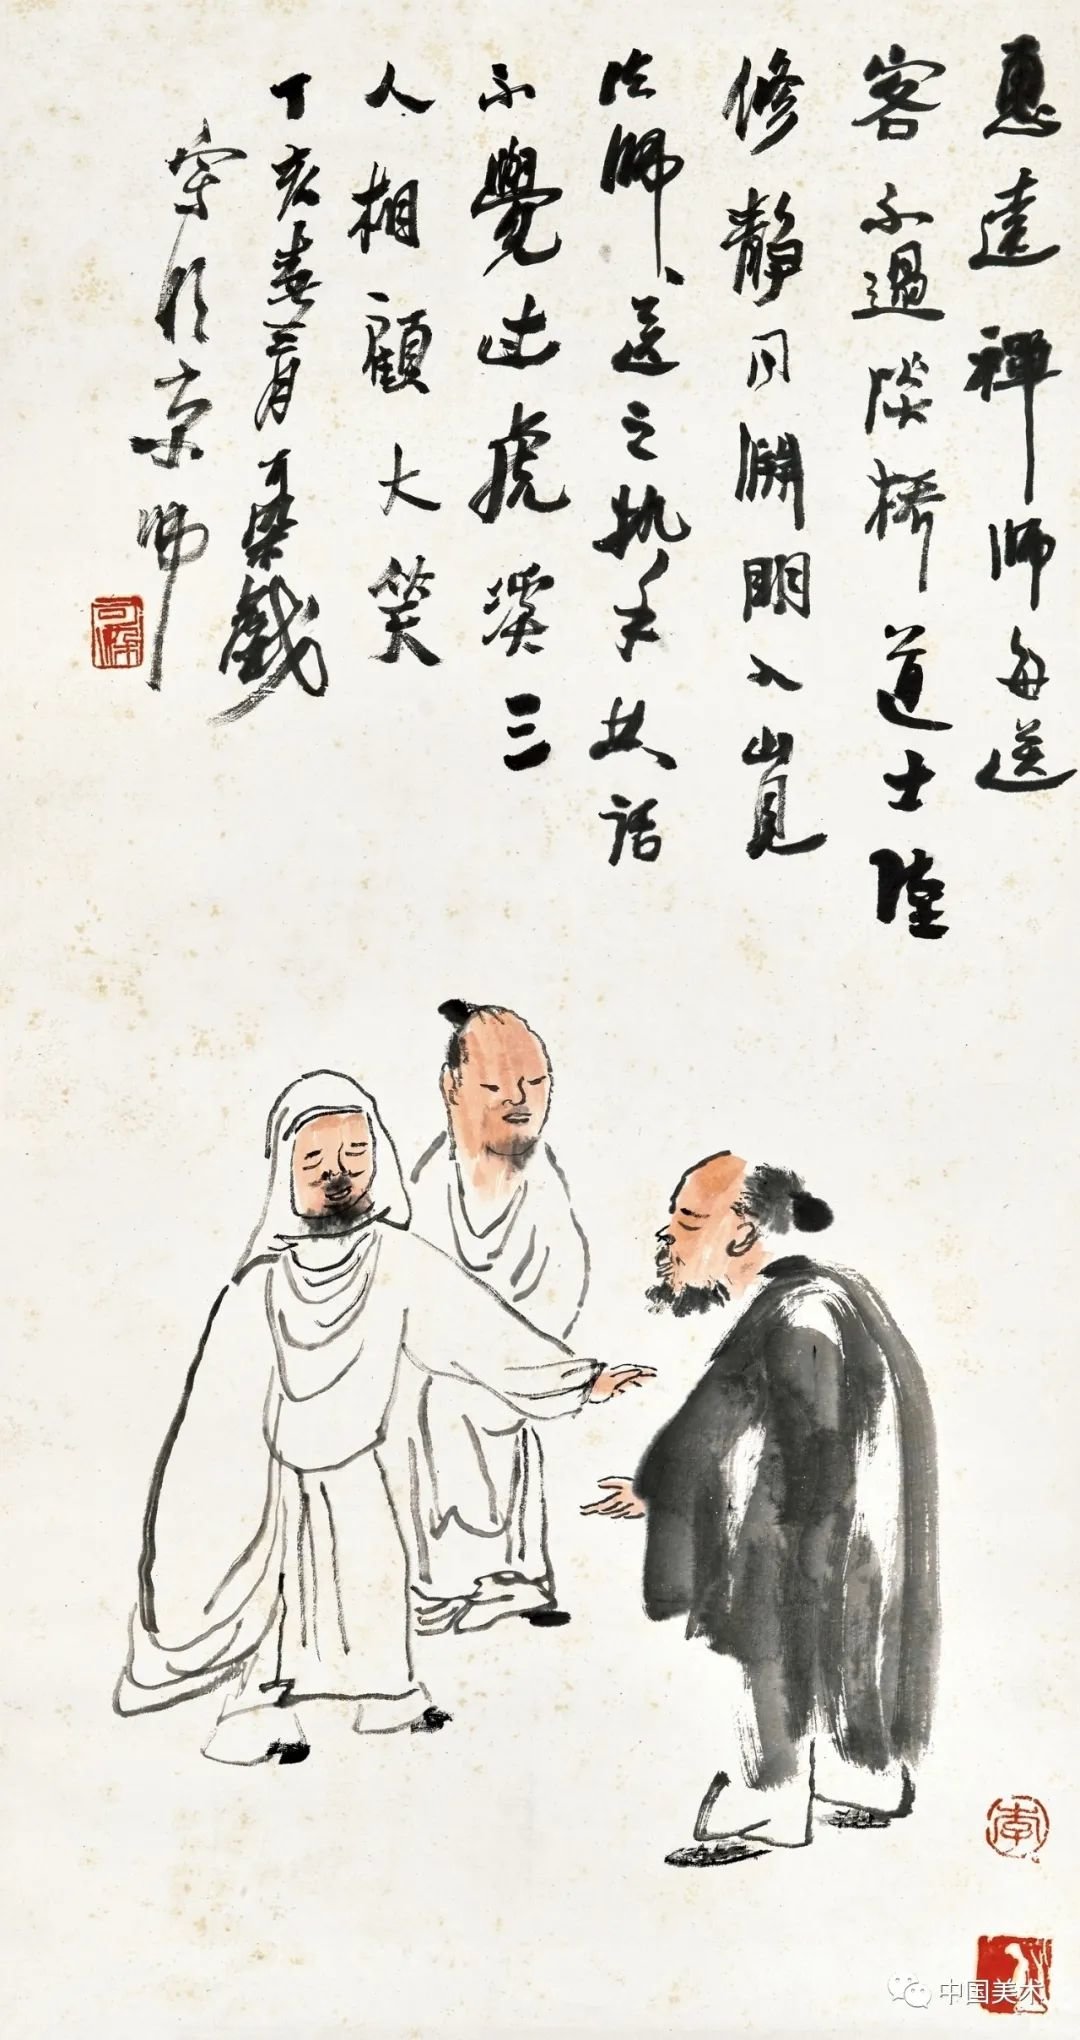 惠遠禪師每送
客不過溪橋道士陸
修靜同淵明入山見
法師送之執手共話
不覺過虎溪三
人相顧大笑
丁亥春三月可染戲
寫於京師
可染
李
中国美术